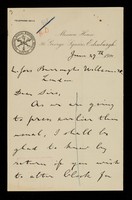 Mission House,
George Square, Edinburgh,
June 29th
Messrs Burroughs Wellcome &
London
Dear Sirs,
As we are going
to press earlier than
usual, I shall be
glad to know by
return if you wish
to alter Block for